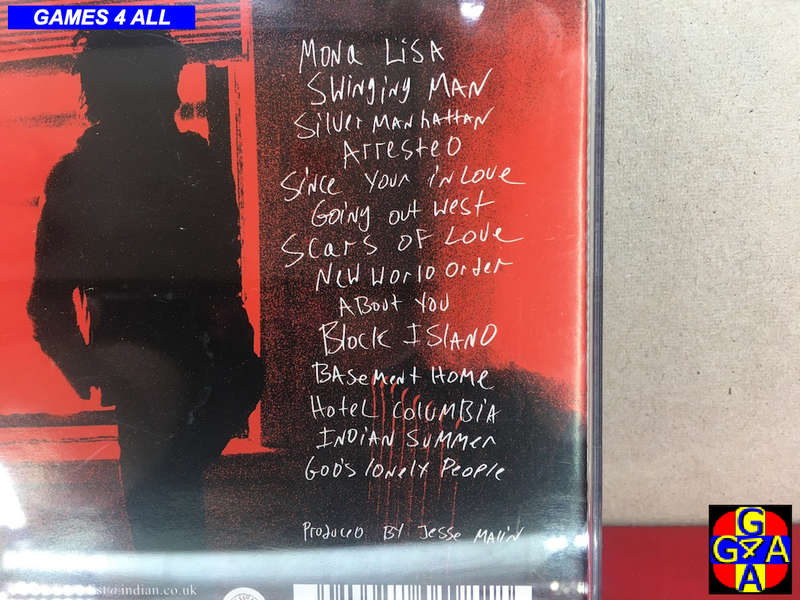 GAMES 4 ALL
MONa LiSA
SWinging MAN
Silver MANHAttAN
ArresteD
Since Your in Love
Going out West
Scars OF Love
New World Order
ABout You
Block ISLAND
BAsement Home
Hotel COLUMBIA
INDIAN SUMMer
GOD's lonely People
PRoduceD BY Jesse MAlin
@indian.co.uk
G
G4A
A